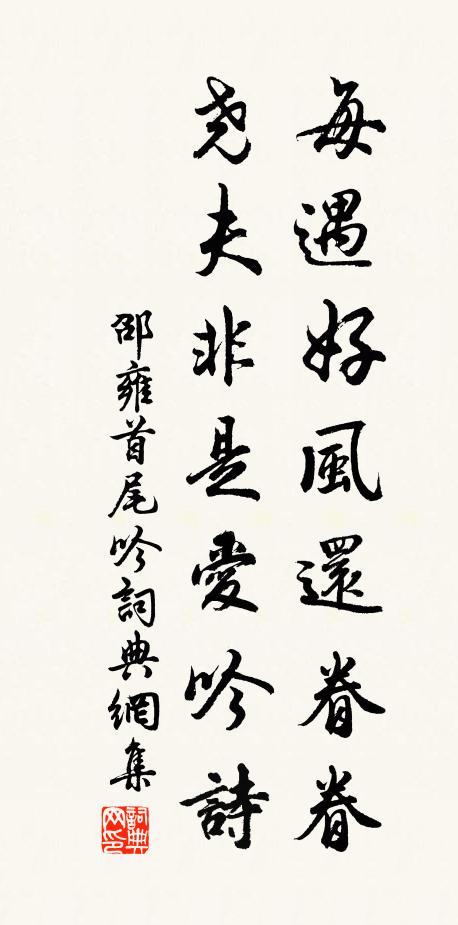 每遇好風還眷眷
堯夫非是愛吟詩
邵雍首尾吟詞典網集
詞典網印